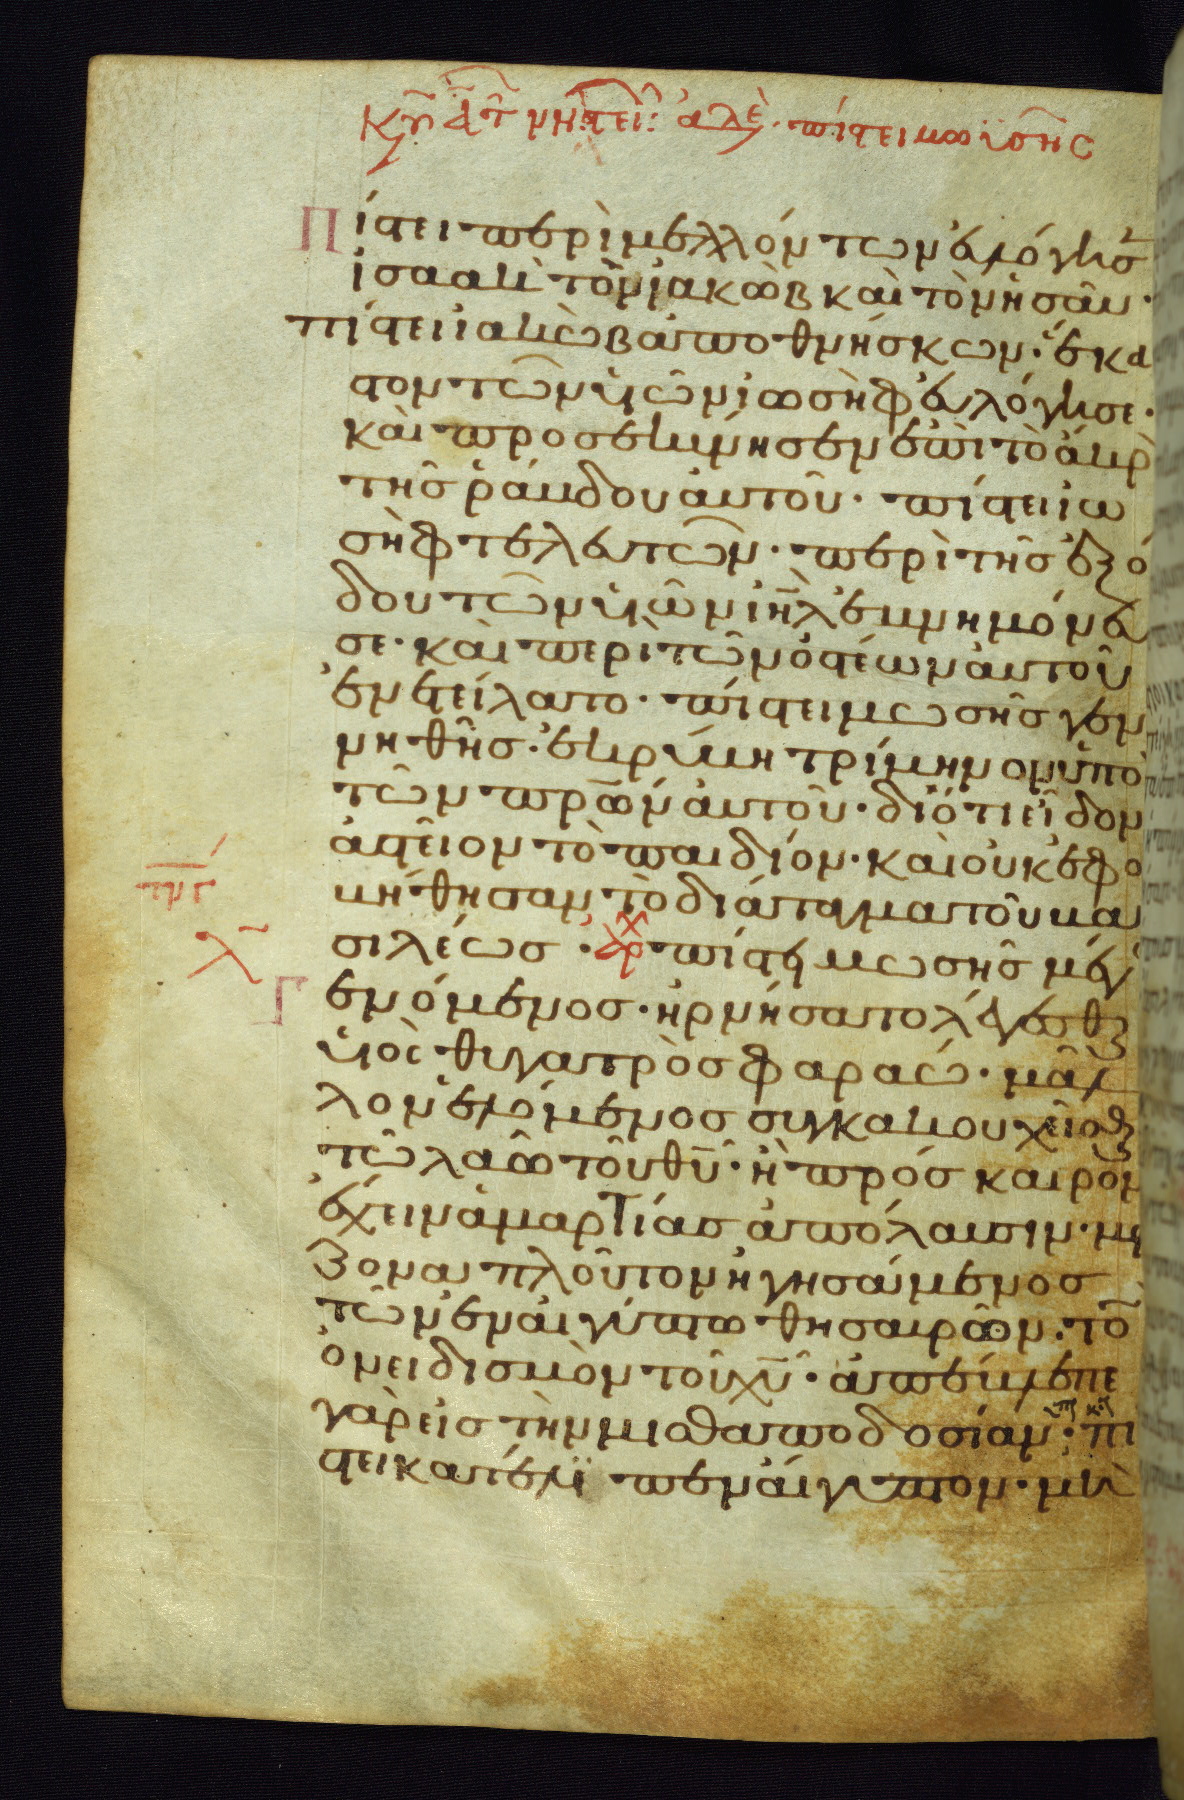 Κυ Α τ νηστει: ἀδελ πίστει μωϊσῆς
Πίστει περὶ μελλόντων εὐλόγησ
ἰσαακ τὸν ἰακὼβ καὶ τὸν ἠσαῦ·
πίστει ἰακὼβ ἀποθνήσκων· ἕκα
στον τῶν υἱῶν ἰωσὴφ εὐλόγησε·
καὶ προσεκύνησεν ἐπὶ τὸ ἄκρ
τῆς ῥάβδου αὐτοῦ· πίστει ἰω
σὴφ τελευτῶν· περὶ τῆς ἐξό
δου τῶν υἱῶν ιηλ ἐμνημόνευ
σε· καὶ περὶ τῶν ὀστέων αὐτοῦ
ἐνετείλατο· πίστει μωσῆς γεν
νηθεῖς· ἐκρύβη τρίμηνον ὑπὸ
τῶν πρων αὐτοῦ· διότι εἶδον
ἀστεῖον τὸ παιδίον· καὶ οὐκ ἐφο
βήθησαν τὸ διάταγμα τοῦ βα
σιλέως· ἀρχ πίστει μωσῆς μέγ
Γενόμενος· ἠρνήσατο λέγεσθαι
υἱὸς θυγατρὸς φαραώ· μᾶλ
λον ἑλόμενος συγκακουχεῖσθαι
τῶ λαῶ τοῦ θυ· ἢ πρόσκαιρον
ἔχειν ἁμαρτίας ἀπόλαυσιν· μεί
ζονα πλοῦτον ἡγησάμενος
τῶν ἐν αἰγύπτω θησαυρῶν· τὸ
ὀνειδισμὸν τοῦ χυ· ἀπέβλεπε
γὰρ εἰς τὴν μισθαποδοσίαν· πί
στει κατέλιπεν αἴγυπτον· μὴ